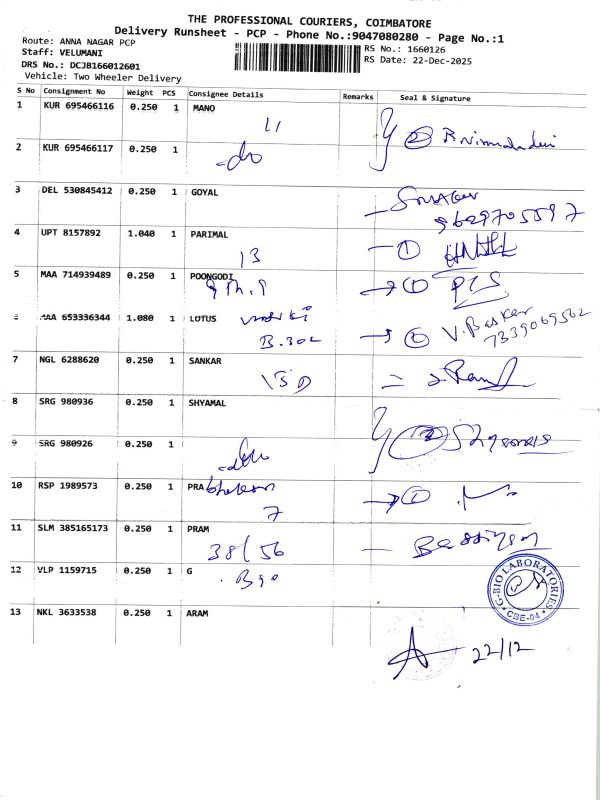 THE PROFESSIONAL COURIERS, COIMBATORE
Delivery Runsheet - PCP - Phone No.:9047080280 - Page No.:1
Route: ANNA NAGAR PCP
Staff: VELUMANI
DRS No.: DCJB166012601
Vehicle: Two Wheeler Delivery
RS No.: 1660126
RS Date: 22-Dec-2025
S No Consignment No Weight PCS Consignee Details Remarks Seal & Signature
1 KUR 695466116 0.250 1 MANO
11
2 KUR 695466117 0.250 1
-do
3 DEL 530845412 0.250 1 GOYAL
9629705597
4 UPT 8157892 1.040 1 PARIMAL
13 1
5 MAA 714939489 0.250 1 POONGODI
1
6 MAA 653336344 1.080 1 LOTUS
B.302 V.Basker
7339069562
7 NGL 6288620 0.250 1 SANKAR
8 SRG 980936 0.250 1 SHYAMAL
9 SRG 980926 0.250 1
10 RSP 1989573 0.250 1 PRA
7
11 SLM 385165173 0.250 1 PRAM
38/56
12 VLP 1159715 0.250 1 G
Bio
G-BIO LABORATORIES
CBE-04
13 NKL 3633538 0.250 1 ARAM
22/12